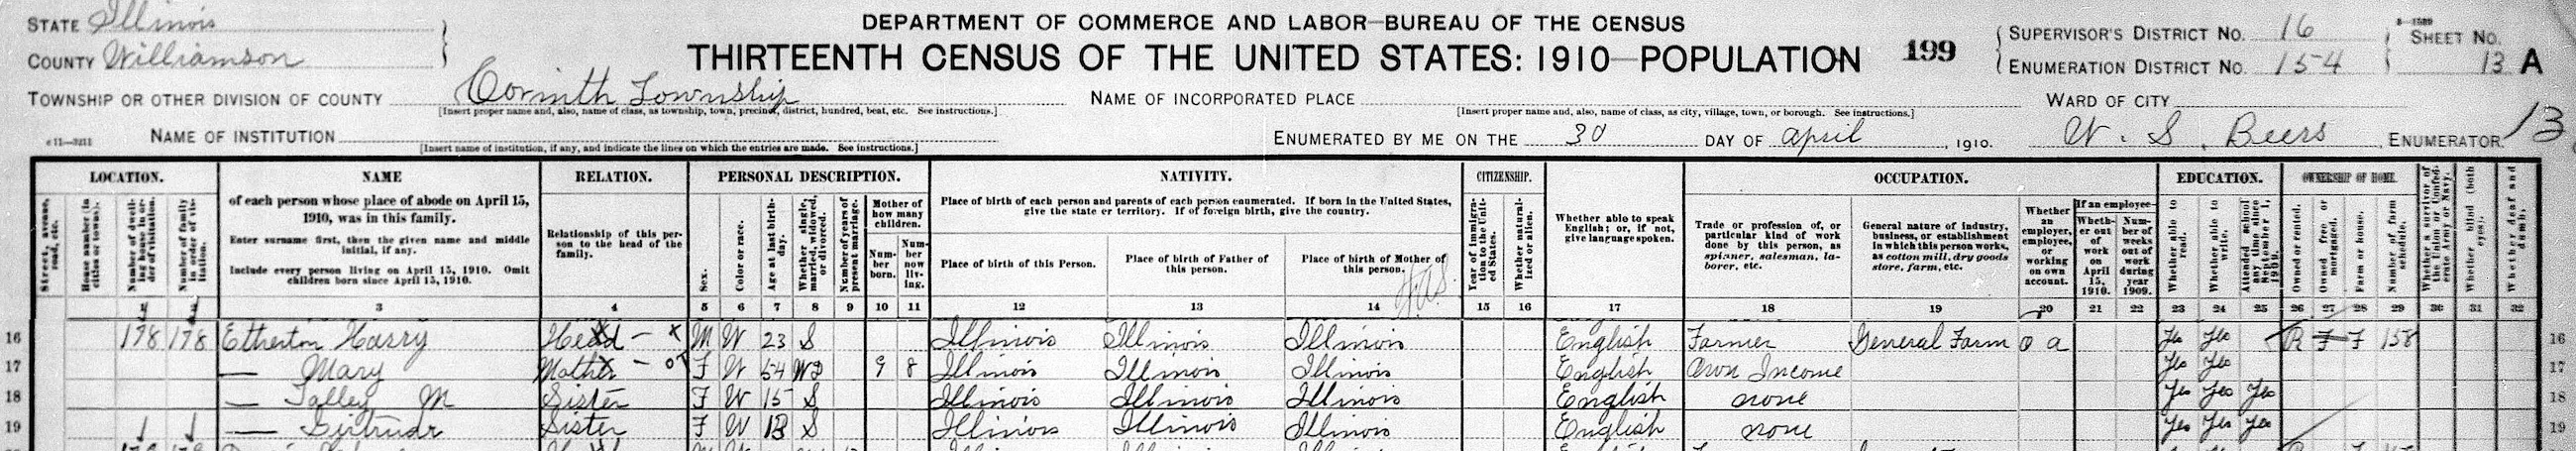 STATE Illinois
COUNTY Williamson
DEPARTMENT OF COMMERCE AND LABOR—BUREAU OF THE CENSUS
THIRTEENTH CENSUS OF THE UNITED STATES: 1910—POPULATION
199
SUPERVISOR'S DISTRICT No. 16
ENUMERATION DISTRICT No. 154
SHEET No.
13 A
TOWNSHIP OR OTHER DIVISION OF COUNTY Corinth Township
[Insert proper name and, also, name of class, as township, town, precinct, district, hundred, beat, etc. See instructions.]
NAME OF INCORPORATED PLACE
[Insert proper name and, also, name of class, as city, village, town, or borough. See instructions.]
WARD OF CITY
NAME OF INSTITUTION
[Insert name of institution, if any, and indicate the lines on which the entries are made. See instructions.]
ENUMERATED BY ME ON THE 30 DAY OF April, 1910. W. S. Beers, ENUMERATOR. 13
LOCATION. NAME RELATION. PERSONAL DESCRIPTION. NATIVITY. CITIZENSHIP. OCCUPATION. EDUCATION. OWNERSHIP OF HOME.
Street, avenue, road, etc.
House number (in cities or towns).
Number of dwelling house in order of visitation.
Number of family in order of visitation.
of each person whose place of abode on April 15, 1910, was in this family.
Enter surname first, then the given name and middle initial, if any.
Include every person living on April 15, 1910. Omit children born since April 15, 1910.
Relationship of this person to the head of the family.
Sex.
Color or race.
Age at last birthday.
Whether single, married, widowed, or divorced.
Number of years of present marriage.
Mother of how many children.
Number born.
Number now living.
Place of birth of each person and parents of each person enumerated. If born in the United States, give the state or territory. If of foreign birth, give the country.
Place of birth of this Person.
Place of birth of Father of this person.
Place of birth of Mother of this person.
Year of immigration to the United States.
Whether naturalized or alien.
Whether able to speak English; or, if not, give language spoken.
Trade or profession of, or particular kind of work done by this person, as spinner, salesman, laborer, etc.
General nature of industry, business, or establishment in which this person works, as cotton mill, dry goods store, farm, etc.
Whether an employer, employee, or working on own account.
If an employee—
Whether out of work on April 15, 1910.
Number of weeks out of work during year 1909.
Whether able to read.
Whether able to write.
Attended school any time since September 1, 1909.
Owned or rented.
Owned free or mortgaged.
Farm or house.
Number of farm schedule.
Whether a survivor of the Union or Confederate Army or Navy.
Whether blind (both eyes).
Whether deaf and dumb.
3 4 5 6 7 8 9 10 11 12 13 14 15 16 17 18 19 20 21 22 23 24 25 26 27 28 29 30 31 32
16 178 178 Etherton Harry Head M W 23 S Illinois Illinois Illinois English Farmer General Farm O a Yes Yes R F F 158 16
17 — Mary Mother F W 54 Wd 9 8 Illinois Illinois Illinois English Own Income Yes Yes 17
18 — Talley M Sister F W 15 S Illinois Illinois Illinois English none Yes Yes Yes 18
19 — Gertrude Sister F W 13 S Illinois Illinois Illinois English none Yes Yes Yes 19